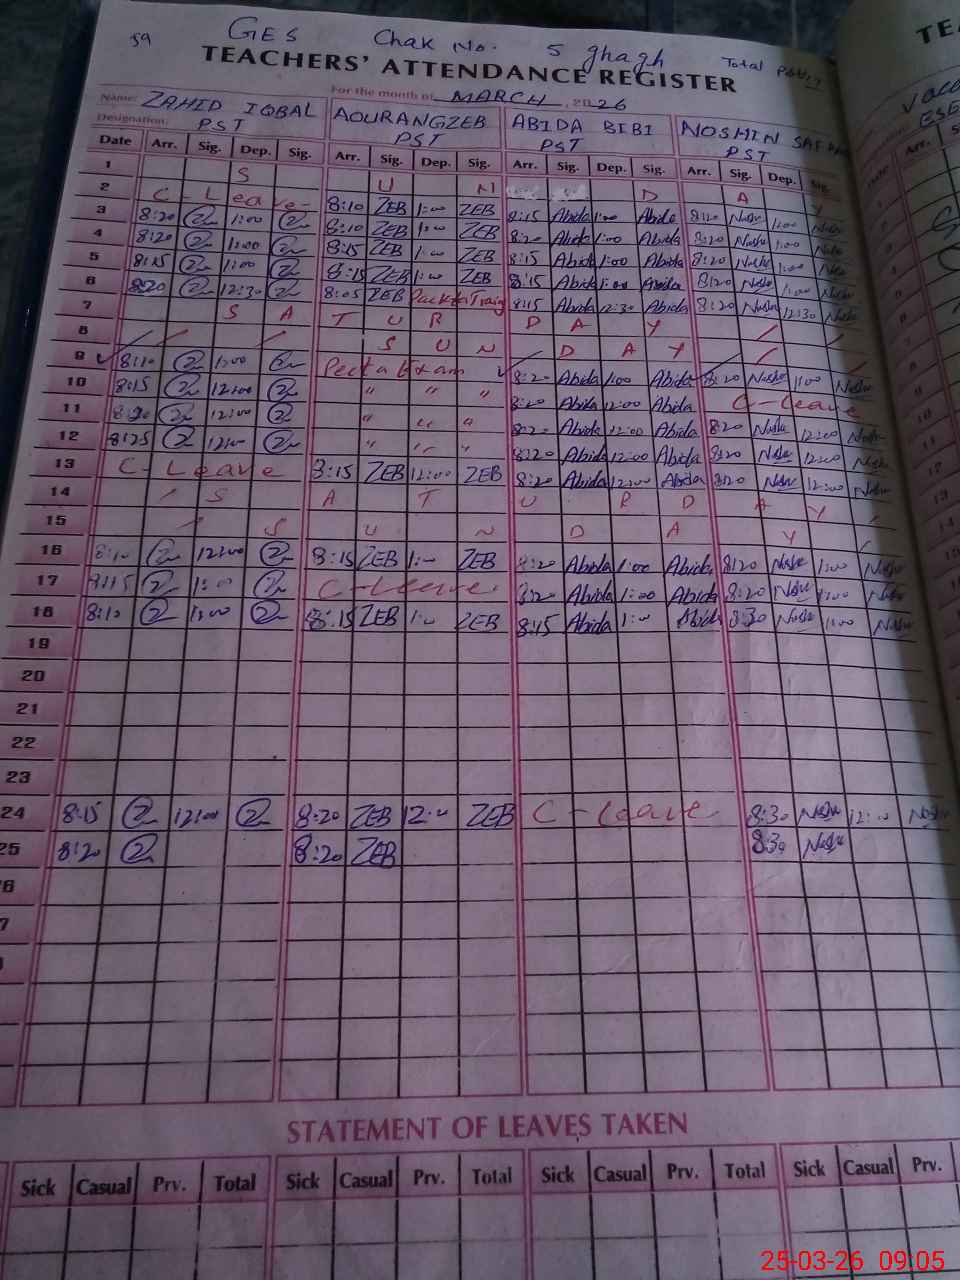 59 GES Chak No. 5 ghagh
TEACHERS' ATTENDANCE REGISTER
Total
For the month of MARCH, 2026
Name: ZAHID IQBAL AOURANGZEB ABIDA BIBI NOSHIN
Designation: PST PST PST PST
Date Arr. Sig. Dep. Sig. Arr. Sig. Dep. Sig. Arr. Sig. Dep. Sig. Arr. Sig. Dep. Sig.
1 S U N D A Y
2 C-Leave 8:10 ZEB 1:00 ZEB 8:15 Abida 1:00 Abida 8:20 Nosh 1:00 Nosh
3 8:20 1:00 8:10 ZEB 1:00 ZEB 8:20 Abida 1:00 Abida 8:20 Nosh 1:00 Nosh
4 8:20 1:00 8:15 ZEB 1:00 ZEB 8:15 Abida 1:00 Abida 8:20 Nosh 1:00 Nosh
5 8:15 1:00 8:15 ZEB 1:00 ZEB 8:15 Abida 1:00 Abida 8:20 Nosh 1:00 Nosh
6 8:20 12:30 8:05 ZEB 8:15 Abida 12:30 Abida 8:20 Nosh 12:30 Nosh
7 S A T U R D A Y
8 S U N D A Y
9 8:10 1:00 Pecta Exam 8:20 Abida 1:00 Abida 8:20 Nosh 1:00 Nosh
10 8:15 12:00 " " " 8:20 Abida 12:00 Abida C-Leave
11 8:20 12:00 " " " 8:20 Abida 12:00 Abida 8:20 Nosh 12:00 Nosh
12 8:25 12:00 " " " 8:20 Abida 12:00 Abida 8:20 Nosh 12:00 Nosh
13 C-Leave 8:15 ZEB 12:00 ZEB 8:20 Abida 12:00 Abida 8:20 Nosh 12:00 Nosh
14 S A T U R D A Y
15 S U N D A Y
16 8:10 12:00 8:15 ZEB 1:00 ZEB 8:20 Abida 1:00 Abida 8:20 Nosh 1:00 Nosh
17 8:15 1:00 C-Leave 8:20 Abida 1:00 Abida 8:20 Nosh 1:00 Nosh
18 8:10 1:00 8:15 ZEB 1:00 ZEB 8:15 Abida 1:00 Abida 8:30 Nosh 1:00 Nosh
19
20
21
22
23
24 8:15 12:00 8:20 ZEB 12:00 ZEB C-Leave 8:30 Nosh 12:00 Nosh
25 8:20 8:20 ZEB 8:30 Nosh
STATEMENT OF LEAVES TAKEN
Sick Casual Prv. Total Sick Casual Prv. Total Sick Casual Prv. Total Sick Casual Prv.
25-03-26 09:05